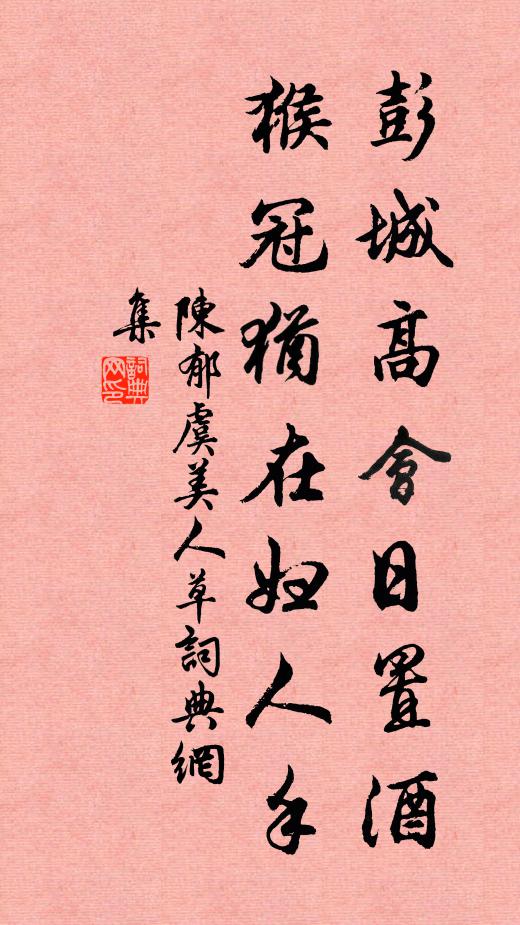 彭城高會日置酒
猴冠猶在妇人手
陳郁虞美人草詞典網
集
詞典網印